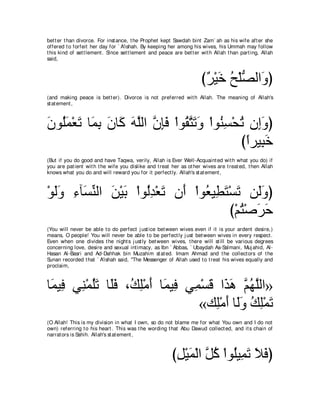 better than divorce. For instance, the Prophet kept Sawdah bint Zam`ah as his wife after she
offered to forfeit her day for `A'ishah. By keeping her among his wives, his Ummah may follow
this kind of settlement. Since settlement and peace are better with Allah than parting, Allah
said,
(وَالصُّلْحُ خَيْرٌ)
(and making peace is better). Divorce is not preferred with Allah. The meaning of Allah's
statement,
(وَإِن تُحْسِنُواْ وَتَتَّقُواْ فَإِنَّ اللَّهَ كَانَ بِمَا تَعْمَلُونَ
خَبِيراً)
(But if you do good and have Taqwa, verily, Allah is Ever Well-Acquainted with what you do) if
you are patient with the wife you dislike and treat her as other wives are treated, then Allah
knows what you do and will reward you for it perfectly. Allah's statement,
(وَلَن تَسْتَطِيعُواْ أَن تَعْدِلُواْ بَيْنَ النِّسَآءِ وَلَوْ
حَرَصْتُمْ)
(You will never be able to do perfect justice between wives even if it is your ardent desire,)
means, O people! You will never be able to be perfectly just between wives in every respect.
Even when one divides the nights justly between wives, there will still be various degrees
concerning love, desire and sexual intimacy, as Ibn `Abbas, `Ubaydah As-Salmani, Mujahid, Al-
Hasan Al-Basri and Ad-Dahhak bin Muzahim stated. Imam Ahmad and the collectors of the
Sunan recorded that `A'ishah said, "The Messenger of Allah used to treat his wives equally and
proclaim,
«اللَّهُمَّ هَذَا قَسْمِي فِيمَا أَمْلِكُ، فَلَا تَلُمْنِي فِيمَا
تَمْلِكُ وَلَا أَمْلِك»
(O Allah! This is my division in what I own, so do not blame me for what You own and I do not
own) referring to his heart. This was the wording that Abu Dawud collected, and its chain of
narrators is Sahih. Allah's statement,
(فَلاَ تَمِيلُواْ كُلَّ الْمَيْلِ)